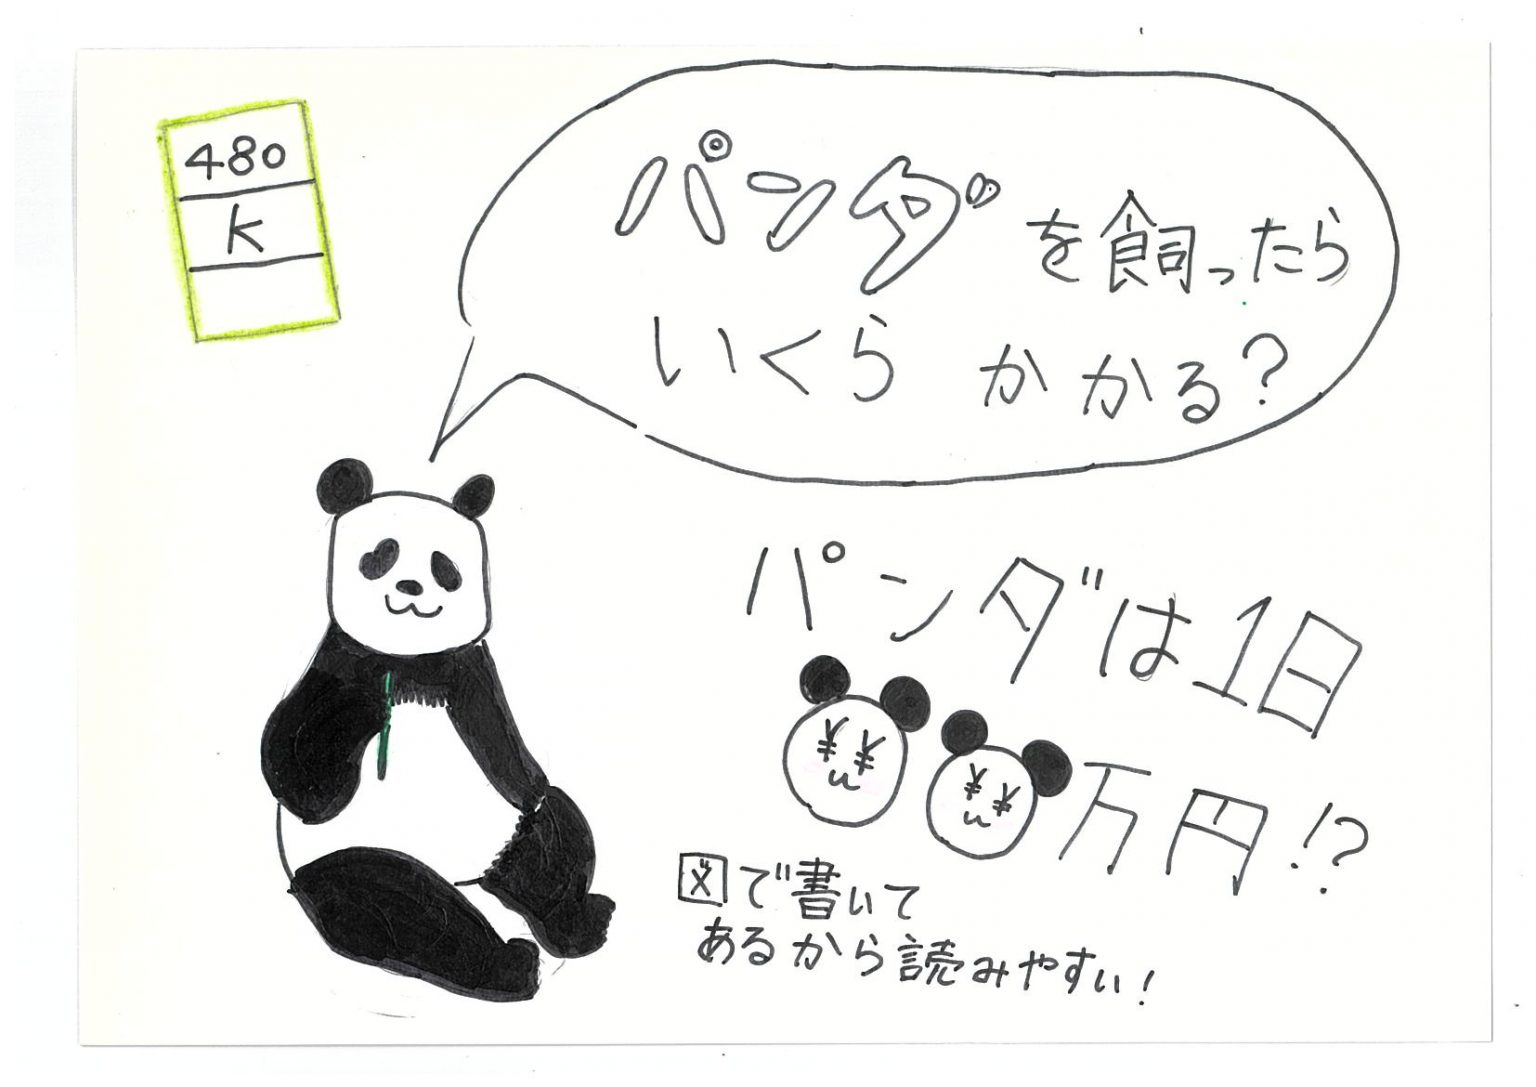 480
K
パンダを飼ったら
いくらかかる?
パンダは1日
万円!?
図で書いて
あるから読みやすい!